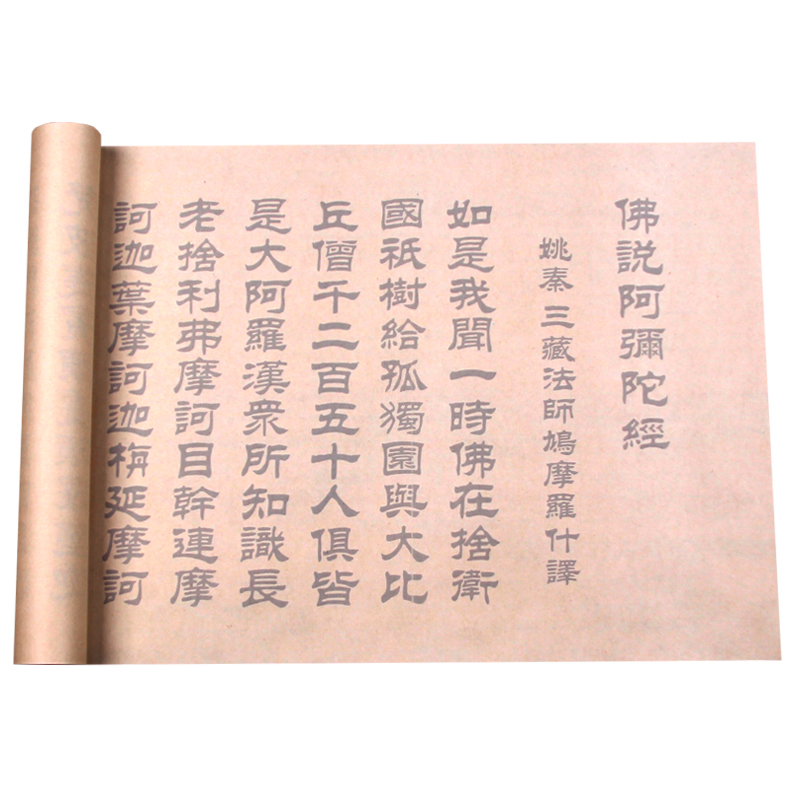 佛説阿彌陀經
姚秦三藏法師鳩摩羅什譯
如是我聞一時佛在捨衛
國祇樹給孤獨園與大比
丘僧千二百五十人俱皆
是大阿羅漢眾所知識長
老捨利弗摩訶目幹連摩
訶迦葉摩訶迦栴延摩訶